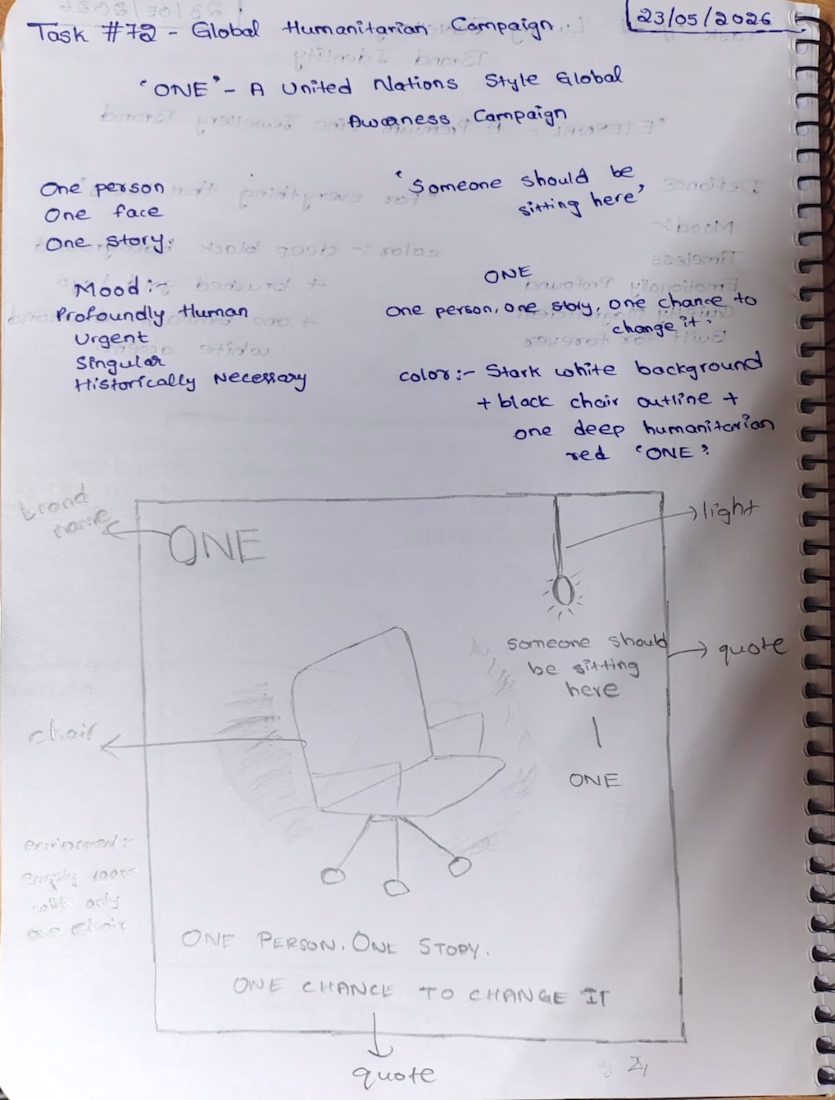 23/05/2026
Task #72 - Global Humanitarian Campaign.
"ONE" - A United Nations Style Global
Awareness Campaign
One person
One face
One story.
'Someone should be
sitting here'
Mood:-
Profoundly Human
Urgent
Singular
Historically Necessary
ONE
One person, one story, one chance to
change it.
color:- Stark white background
+ black chair outline +
one deep humanitarian
red 'ONE'
brand
name
ONE
light
someone should
be sitting
here
|
ONE
quote
chair
empty room
with only
one chair
ONE PERSON. ONE STORY.
ONE CHANCE TO CHANGE IT
quote